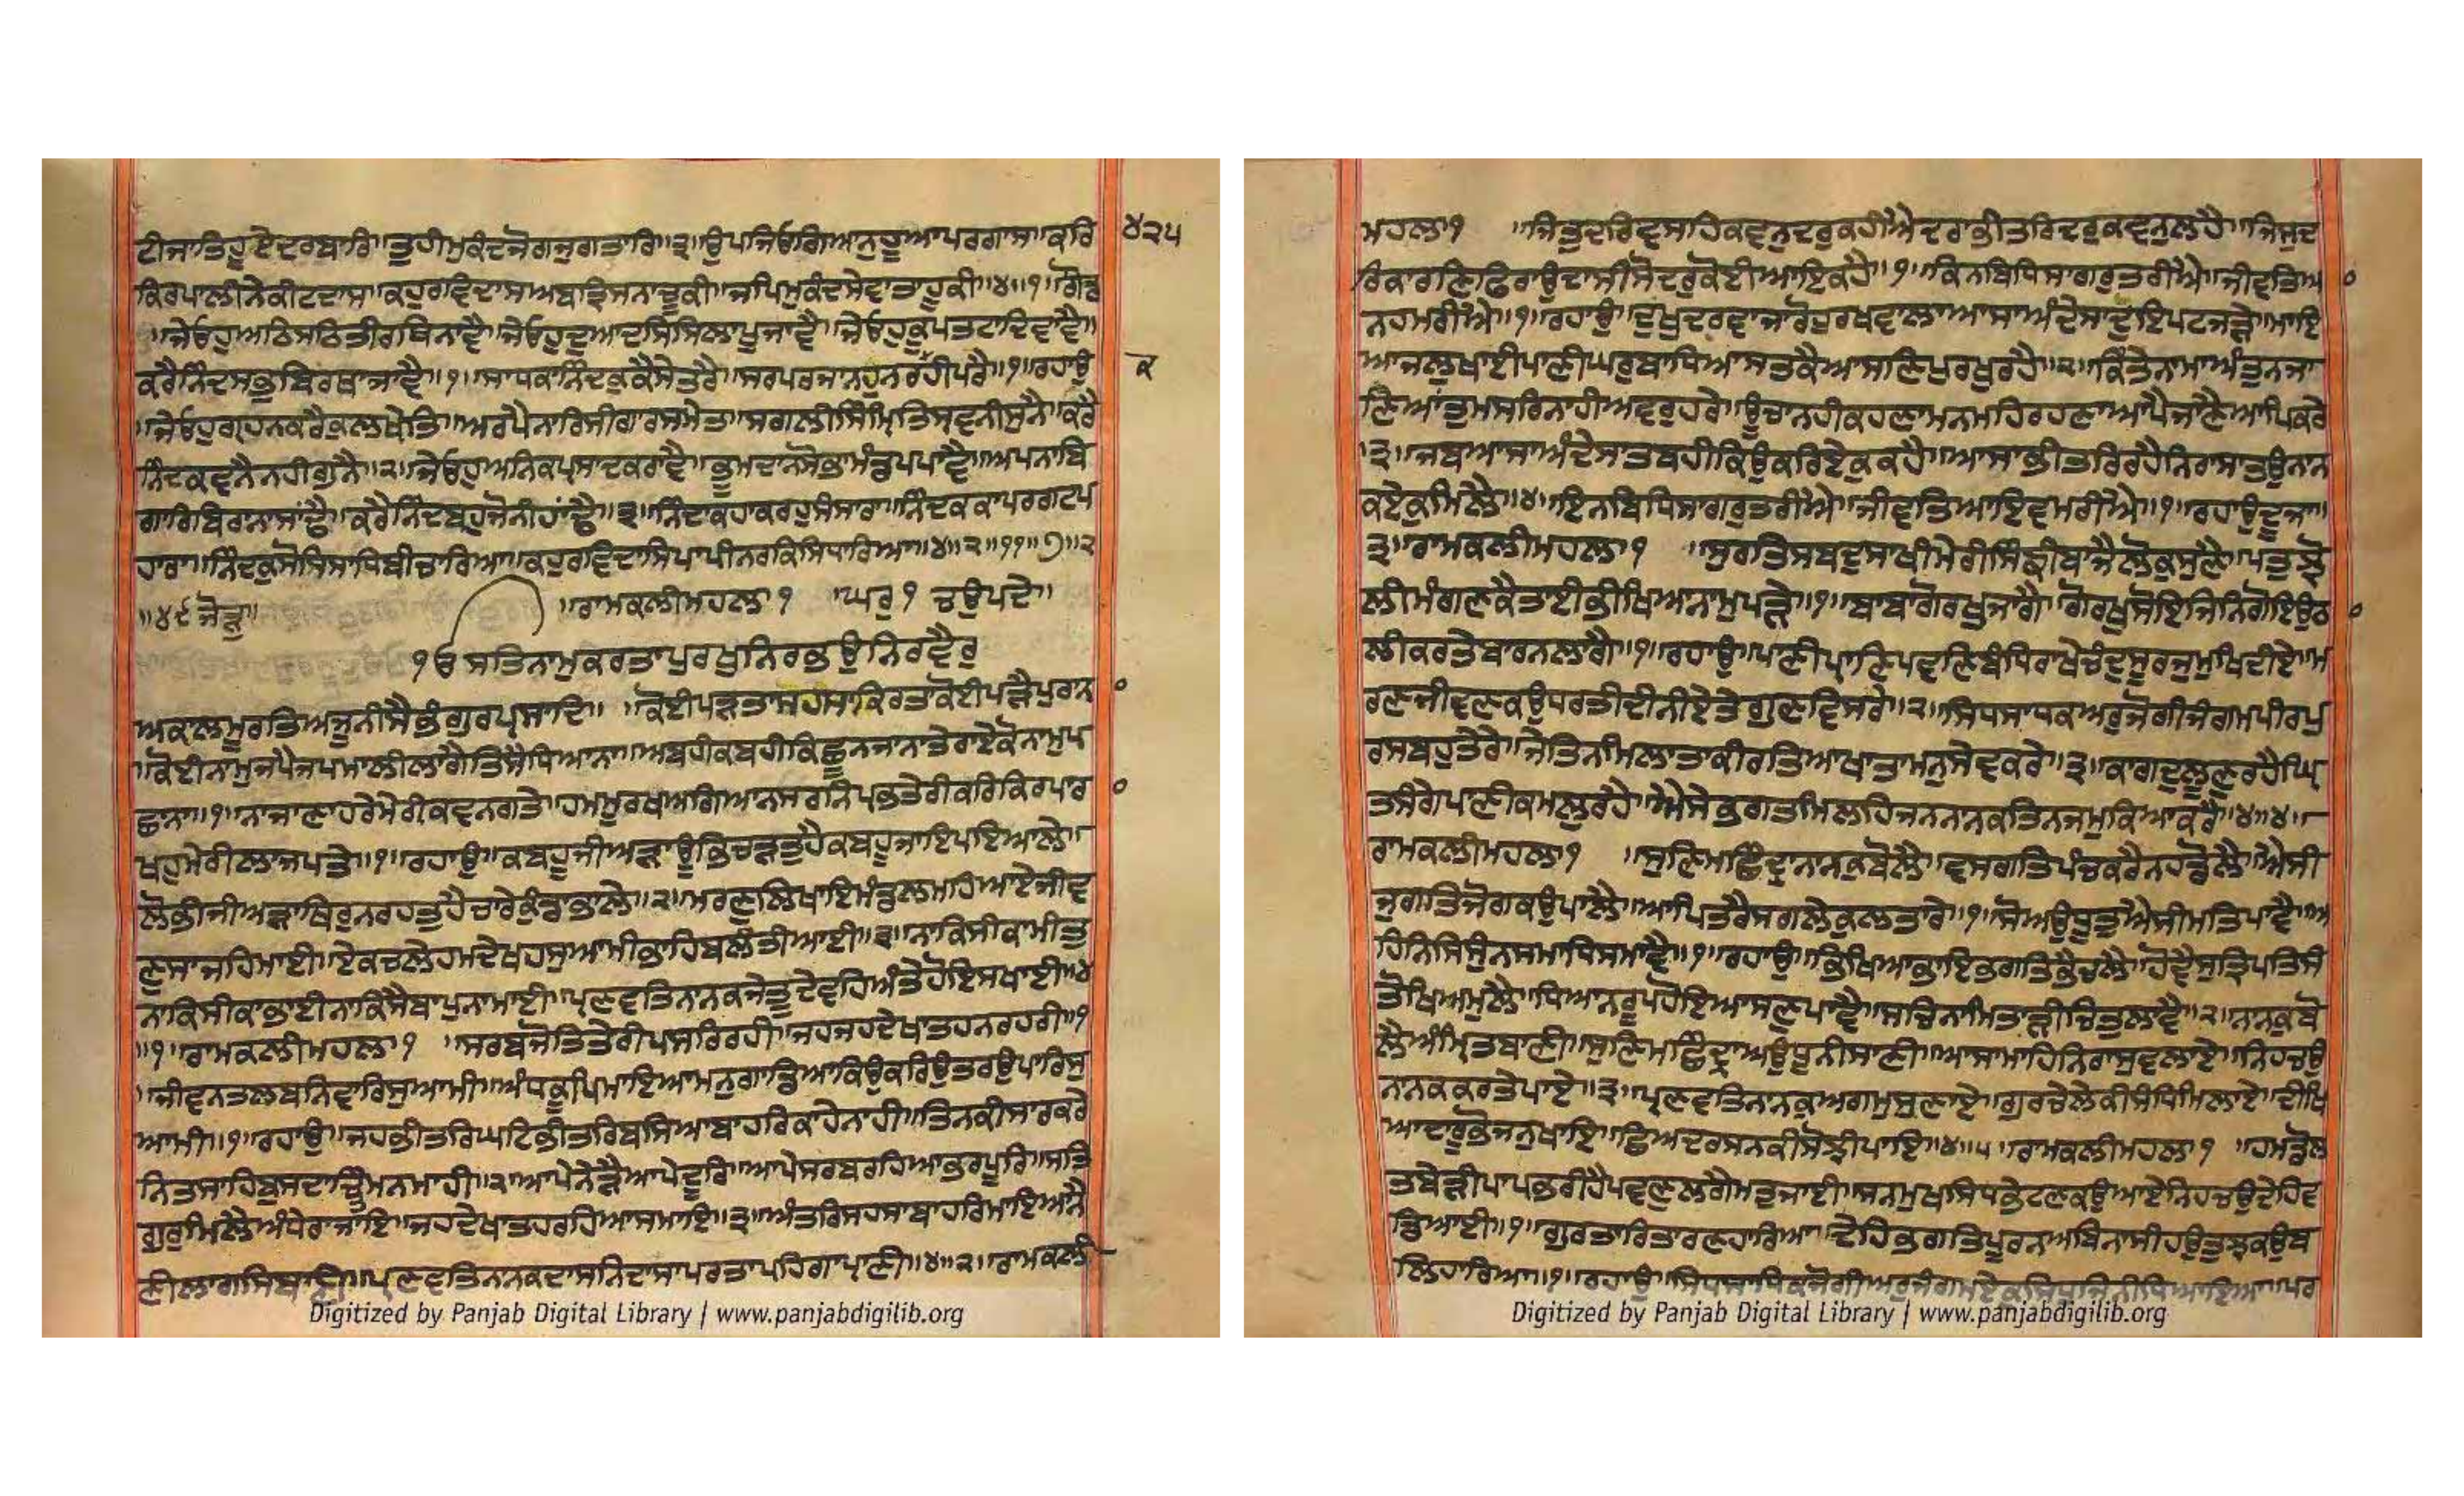 ਟੀਜਾਤਿਹੁਏਦਰਬਾਰਿ॥ਤੁਹੀਮੁਕੰਦਜੋਗਜੁਗਤਾਰਿ॥੩॥ਉਪਜਿਓਗਿਆਨੁਹੂਆਪਰਗਾਸ॥ਕਰਿ ੪੨੫
ਕਿਰਪਾਲੀਨੇਕੀਟਦਾਸ॥ਕਹੁਰਵਿਦਾਸਅਬਤ੍ਰਿਸਨਾਚੂਕੀ॥ਜਪਿਮੁਕੰਦਸੇਵਾਤਾਹੂਕੀ॥੪॥੧॥ਗੋਂਡ
॥ਜੇਓਹੁਅਠਿਸਠਿਤੀਰਥਨਾਵੈ॥ਜੇਓਹੁਦੁਆਦਸਸਿਲਾਪੂਜਾਵੈ॥ਜੇਓਹੁਕੂਪਤਟਾਦਿਵਾਵੈ॥
ਕਰੈਨਿੰਦਸਭਬਿਰਥਾਜਾਵੈ॥੧॥ਸਾਧਕਾਨਿੰਦਕੁਕੈਸੇਤਰੈ॥ਸਰਪਰਜਾਨਹੁਨਰਕਹੀਪਰੈ॥੧॥ਰਹਾਉ ਕ
॥ਜੇਓਹੁਗ੍ਰਹਨਕਰੈਕੁਲਖੇਤਿ॥ਅਰਪੈਨਾਰਿਸੀਗਾਰਸਮੇਤਿ॥ਸਗਲੀਸਿੰਮ੍ਰਿਤਿਸ੍ਰਵਨੀਸੁਨੈ॥ਕਰੈ
ਨਿੰਦਕਵਨੈਨਹੀਗੁਨੈ॥੨॥ਜੇਓਹੁਅਨਿਕਪ੍ਰਸਾਦਕਰਾਵੈ॥ਭੂਮਦਾਨਸੋਭਾਮੰਡਪਪਾਵੈ॥ਅਪਨਾਬਿ
ਗਾਰਿਬਿਰਨਾਸਾਂਢੈ॥ਕਰੈਨਿੰਦਬਹੁਜੋਨੀਹਾਂਢੈ॥੩॥ਨਿੰਦਾਕਹਾਕਰਹੁਸੰਸਾਰਾ॥ਨਿੰਦਕਕਾਪਰਗਟਪ
ਹਾਰਾ॥ਨਿੰਦਕੁਸੋਧਿਸਾਧਿਬੀਚਾਰਿਆ॥ਕਹੁਰਵਿਦਾਸਿਪਾਪੀਨਰਕਿਸਿਧਾਰਿਆ॥੪॥੨॥੧੧॥੭॥੨
॥੪੯ਜੋੜੁ॥ ॥ਰਾਮਕਲੀਮਹਲਾ੧ ॥ਘਰੁ੧ ਚਉਪਦੇ॥
੧ਓ ਸਤਿਨਾਮੁਕਰਤਾਪੁਰਖੁਨਿਰਭਉਨਿਰਵੈਰੁ
ਅਕਾਲਮੂਰਤਿਅਜੂਨੀਸੈਭੰਗੁਰਪ੍ਰਸਾਦਿ॥ ॥ਕੋਈਪੜਤਾਸਹਸਾਕਿਰਤਾਕੋਈਪੜੈਪੁਰਾਨ
॥ਕੋਈਨਾਮੁਜਪੈਜਪਮਾਲੀਲਾਗੈਤਿਸੈਧਿਆਨਾ॥ਅਬਹੀਕਬਹੀਕਿਛੂਨਜਾਨਾਤੇਰਾਏਕੋਨਾਮੁਪ
ਛਾਨਾ॥੧॥ਨਾਜਾਣਾਹਰੇਮੇਰੀਕਵਨਗਤੇ॥ਹਮਮੂਰਖਅਗਿਆਨਸਰਨਿਪ੍ਰਭਤੇਰੀਕਰਿਕਿਰਪਾਰ
ਖਹੁਮੇਰੀਲਾਜਪਤੇ॥੧॥ਰਹਾਉ॥ਕਬਹੂਜੀਅੜਾਊਭਿਚੜਤੁਹੈਕਬਹੂਜਾਇਪਇਆਲੇ॥
ਲੋਭੀਜੀਅੜਾਥਿਰੁਨਰਹਤੁਹੈਚਾਰੇਕੁੰਡਾਭਾਲੇ॥੨॥ਮਰਣੁਲਿਖਾਇਮੰਡਲਮਹਿਆਏਜੀਵ
ਣੁਸਾਜਹਿਮਾਈ॥ਏਕਚਲੇਹਮਦੇਖਹਸੁਆਮੀਭਾਹਿਬਲੰਤੀਆਈ॥੩॥ਨਾਕਿਸੀਕਾਮੀਤੁ
ਨਾਕਿਸੀਕਾਭਾਈਨਾਕਿਸੈਬਾਪੁਨਾਮਾਈ॥ਪ੍ਰਣਵਤਿਨਾਨਕਜੇਤੂਦੇਵਹਿਅੰਤੇਹੋਇਸਖਾਈ॥੪
॥੧॥ਰਾਮਕਲੀਮਹਲਾ੧ ॥ਸਰਬਜੋਤਿਤੇਰੀਪਸਰਿਰਹੀ॥ਜਹਜਹਦੇਖਾਤਹਨਰਹਰੀ॥੧
॥ਜੀਵਨਤਲਬਨਿਵਾਰਿਸੁਆਮੀ॥ਅੰਧਕੂਪਿਮਾਇਆਮਨੁਗਾਡਿਆਕਿਉਕਰਿਉਤਰਉਪਾਰਿਸੁ
ਆਮੀ॥੧॥ਰਹਾਉ॥ਜਹਭੀਤਰਿਘਟਿਭੀਤਰਿਬਸਿਆਬਾਹਰਿਕਾਹੇਨਾਹੀ॥ਤਿਨਕੀਸਾਰਕਰੇ
ਨਿਤਸਾਹਿਬੁਸਦਾਚਿੰਤਮਨਮਾਹੀ॥੨॥ਆਪੇਨੇੜੈਆਪੇਦੂਰਿ॥ਆਪੇਸਰਬਰਹਿਆਭਰਪੂਰਿ॥ਸਤਿ
ਗੁਰੁਮਿਲੈਅੰਧੇਰਾਜਾਇ॥ਜਹਦੇਖਾਤਹਰਹਿਆਸਮਾਇ॥੩॥ਅੰਤਰਿਸਹਸਾਬਾਹਰਿਮਾਇਆਨੈ
ਣੀਲਾਗਸਿਬਾਣੀ॥ਪ੍ਰਣਵਤਿਨਾਨਕਦਾਸਨਿਦਾਸਾਪਰਤਾਪਹਿਗਾਪ੍ਰਾਣੀ॥੪॥੨॥ਰਾਮਕਲੀ
Digitized by Panjab Digital Library | www.panjabdigilib.org
ਮਹਲਾ੧ ॥ਜਿਤੁਦਰਿਵਸਹਿਕਵਨੁਦਰੁਕਹੀਐਦਰਾਭੀਤਰਿਦਰੁਕਵਨੁਲਹੈ॥ਜਿਸੁਦ
ਰਿਕਾਰਣਿਫਿਰਾਉਦਾਸੀਸੋਦਰੁਕੋਈਆਇਕਹੈ॥੧॥ਕਿਨਬਿਧਿਸਾਗਰੁਤਰੀਐ॥ਜੀਵਤਿਆ
ਨਹਮਰੀਐ॥੧॥ਰਹਾਉ॥ਦੁਖੁਦਰਵਾਜਾਰੋਹੁਰਖਵਾਲਾਆਸਾਅੰਦੇਸਾਦੁਇਪਟਜੜੇ॥ਮਾਇ
ਆਜਲੁਖਾਈਪਾਣੀਘਰੁਬਾਧਿਆਸਤਕੈਆਸਣਿਪੁਰਖੁਰਹੈ॥੨॥ਕਿੰਤੇਨਾਮਾਅੰਤੁਨਜਾ
ਣਿਆਤੁਮਸਰਿਨਾਹੀਅਵਰੁਹਰੇ॥ਊਚਾਨਹੀਕਹਣਾਮਨਮਹਿਰਹਣਾਆਪੈਜਾਣੈਆਪਿਕਰੇ
॥੩॥ਜਬਆਸਾਅੰਦੇਸਾਤਬਹੀਕਿਉਕਰਿਏਕੁਕਹੈ॥ਆਸਾਭੀਤਰਿਰਹੈਨਿਰਾਸਾਤਉਨਾਨ
ਕਏਕੁਮਿਲੈ॥੪॥ਇਨਬਿਧਿਸਾਗਰੁਤਰੀਐ॥ਜੀਵਤਿਆਇਵਮਰੀਐ॥੧॥ਰਹਾਉਦੂਜਾ॥
੩॥ਰਾਮਕਲੀਮਹਲਾ੧ ॥ਸੁਰਤਿਸਬਦੁਸਾਖੀਮੇਰੀਸਿੰਙੀਬਾਜੈਲੋਕੁਸੁਣੇ॥ਪਤੁਝੋ
ਲੀਮੰਗਣਕੈਤਾਈਭੀਖਿਆਨਾਮੁਪੜੇ॥੧॥ਬਾਬਾਗੋਰਖੁਜਾਗੈ॥ਗੋਰਖੁਸੋਇਜਿਨਿਗੋਇਉਠ
ਲੀਕਰਤੇਬਾਰਨਲਾਗੈ॥੧॥ਰਹਾਉ॥ਪਾਣੀਪ੍ਰਾਣਿਪਵਣਿਬੰਧਿਰਾਖੇਚੰਦੁਸੂਰਜੁਮੁਖਿਦੀਏ॥ਮ
ਰਣਜੀਵਣਕਉਧਰਤੀਦੀਨੀਏਤੇਗੁਣਵਿਸਰੇ॥੨॥ਸਿਧਸਾਧਕਅਰੁਜੋਗੀਜੰਗਮਪੀਰਪੁ
ਰਸਬਹੁਤੇਰੇ॥ਜੇਤਿਨਮਿਲਾਤਾਕੀਰਤਿਆਖਾਤਾਮਨੁਸੇਵਕਰੇ॥੩॥ਕਾਗਦੁਲੂਣੁਰਹੈਘ੍ਰਿ
ਤਸੰਗੇਪਾਣੀਕਮਲੁਰਹੈ॥ਐਸੇਭਗਤਮਿਲਹਿਜਨਨਾਨਕਤਿਨਜਮੁਕਿਆਕਰੈ॥੪॥੪॥
ਰਾਮਕਲੀਮਹਲਾ੧ ॥ਸੁਣਿਮਾਛਿੰਦ੍ਰਾਨਾਨਕੁਬੋਲੈ॥ਵਸਗਤਿਪੰਚਕਰੇਨਹਡੋਲੈ॥ਐਸੀ
ਜੁਗਤਿਜੋਗਕਉਪਾਲੇ॥ਆਪਿਤਰੈਸਗਲੇਕੁਲਤਾਰੇ॥੧॥ਸੋਅਉਧੂਤੁਐਸੀਮਤਿਪਾਵੈ॥ਅ
ਹਿਨਿਸਿਸੁੰਨਸਮਾਧਿਸਮਾਵੈ॥੧॥ਰਹਾਉ॥ਭਿਖਿਆਭਾਇਭਗਤਿਭੈਚਲੈ॥ਹੋਵੈਸੁਤ੍ਰਿਪਤਿਸੰ
ਤੋਖਿਅਮੁਲੈ॥ਧਿਆਨਰੂਪਹੋਇਆਸਣੁਪਾਵੈ॥ਸਚਿਨਾਮਿਤਾੜੀਚਿਤੁਲਾਵੈ॥੨॥ਨਾਨਕੁਬੋ
ਲੈਅੰਮ੍ਰਿਤਬਾਣੀ॥ਸੁਣਿਮਾਛਿੰਦ੍ਰਾਅਉਧੂਨੀਸਾਣੀ॥ਆਸਾਮਾਹਿਨਿਰਾਸੁਵਲਾਏ॥ਨਿਹਚਉ
ਨਾਨਕਕਰਤੇਪਾਏ॥੩॥ਪ੍ਰਣਵਤਿਨਾਨਕੁਅਗਮੁਸੁਣਾਏ॥ਗੁਰਚੇਲੇਕੀਸੰਧਿਮਿਲਾਏ॥ਦੀਖਿ
ਆਦਾਰੂਭੋਜਨੁਖਾਇ॥ਛਿਅਦਰਸਨਕੀਸੋਝੀਪਾਇ॥੪॥੫॥ਰਾਮਕਲੀਮਹਲਾ੧ ॥ਹਮਡੋਲ
ਤਬੇੜੀਪਾਪਭਰੀਹੈਪਵਣੁਲਗੈਮਤੁਜਾਈ॥ਸਨਮੁਖਸਿਧਭੇਟਣਕਉਆਏਨਿਹਚਉਦੇਹਿਵ
ਡਿਆਈ॥੧॥ਗੁਰਤਾਰਿਤਾਰਣਹਾਰਿਆ॥ਦੇਹਿਭਗਤਿਪੂਰਨਅਬਿਨਾਸੀਹਉਤੁਝਕਉਬ
ਲਿਹਾਰਿਆ॥੧॥ਰਹਾਉ॥ਸਿਧਸਾਧਿਕਜੋਗੀਅਰੁਜੰਗਮਏਕੁਸਿਧੁਜਿਨੀਧਿਆਇਆ॥ਪਰ
Digitized by Panjab Digital Library | www.panjabdigilib.org